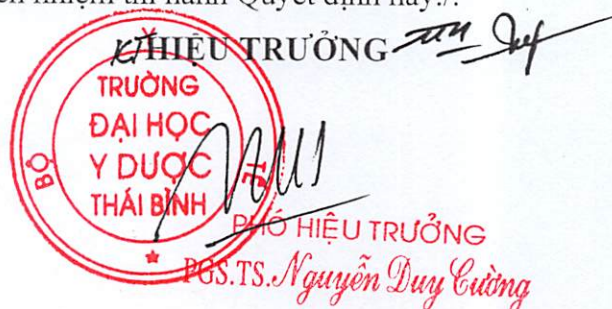 nhiệm thi hành Quyết định này./.
KT HIỆU TRƯỞNG
TRƯỜNG
ĐẠI HỌC
Y DƯỢC
THÁI BÌNH
BỘ
TẾ
PHÓ HIỆU TRƯỞNG
PGS.TS. Nguyễn Duy Cường